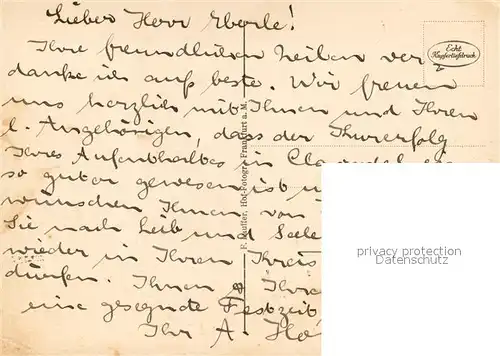 Lieber Herr Eberle!
Ihre freundlichen Zeilen ver
danke ich aufs beste. Wir freuen
uns herzlich mit Ihnen und Ihren
l. Angehörigen, dass der
Ihres Aufenthaltes in
so guter gewesen ist
wünschen Ihnen von
Sie nach Leib und Seele
wieder in Ihren Kreis
dürfen. Ihnen & Ihre
eine gesegnete Festzeit
Ihr A.
Echt
Kupfertiefdruck
Hof-Fotogr. Frankfurt a. M.
privacy protection
Datenschutz